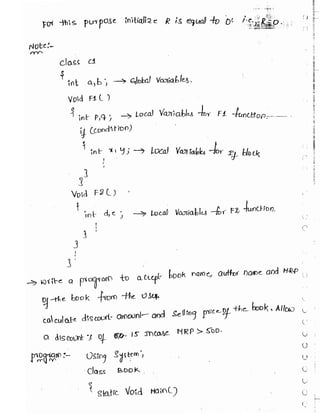 For this purpose initialize R is equal to 0: i.e; R=0.
Note:-
class c1
{
int a,b; → Global Variables.
Void F1( )
{
int P,q; → Local Variables for F1 function.
if (condition)
{
int x, y; → Local Variables for If block
}
}
Void F2( )
{
int d,e; → Local Variables for F2 function.
}
}
→ Write a program to accept book name, author name and MRP
of the book from the user.
calculate discount amount and Selling price of the book. Allow
a discount % of 15 incase MRP > 500.
program:- Using System;
Class Book
{
Static Void Main( )